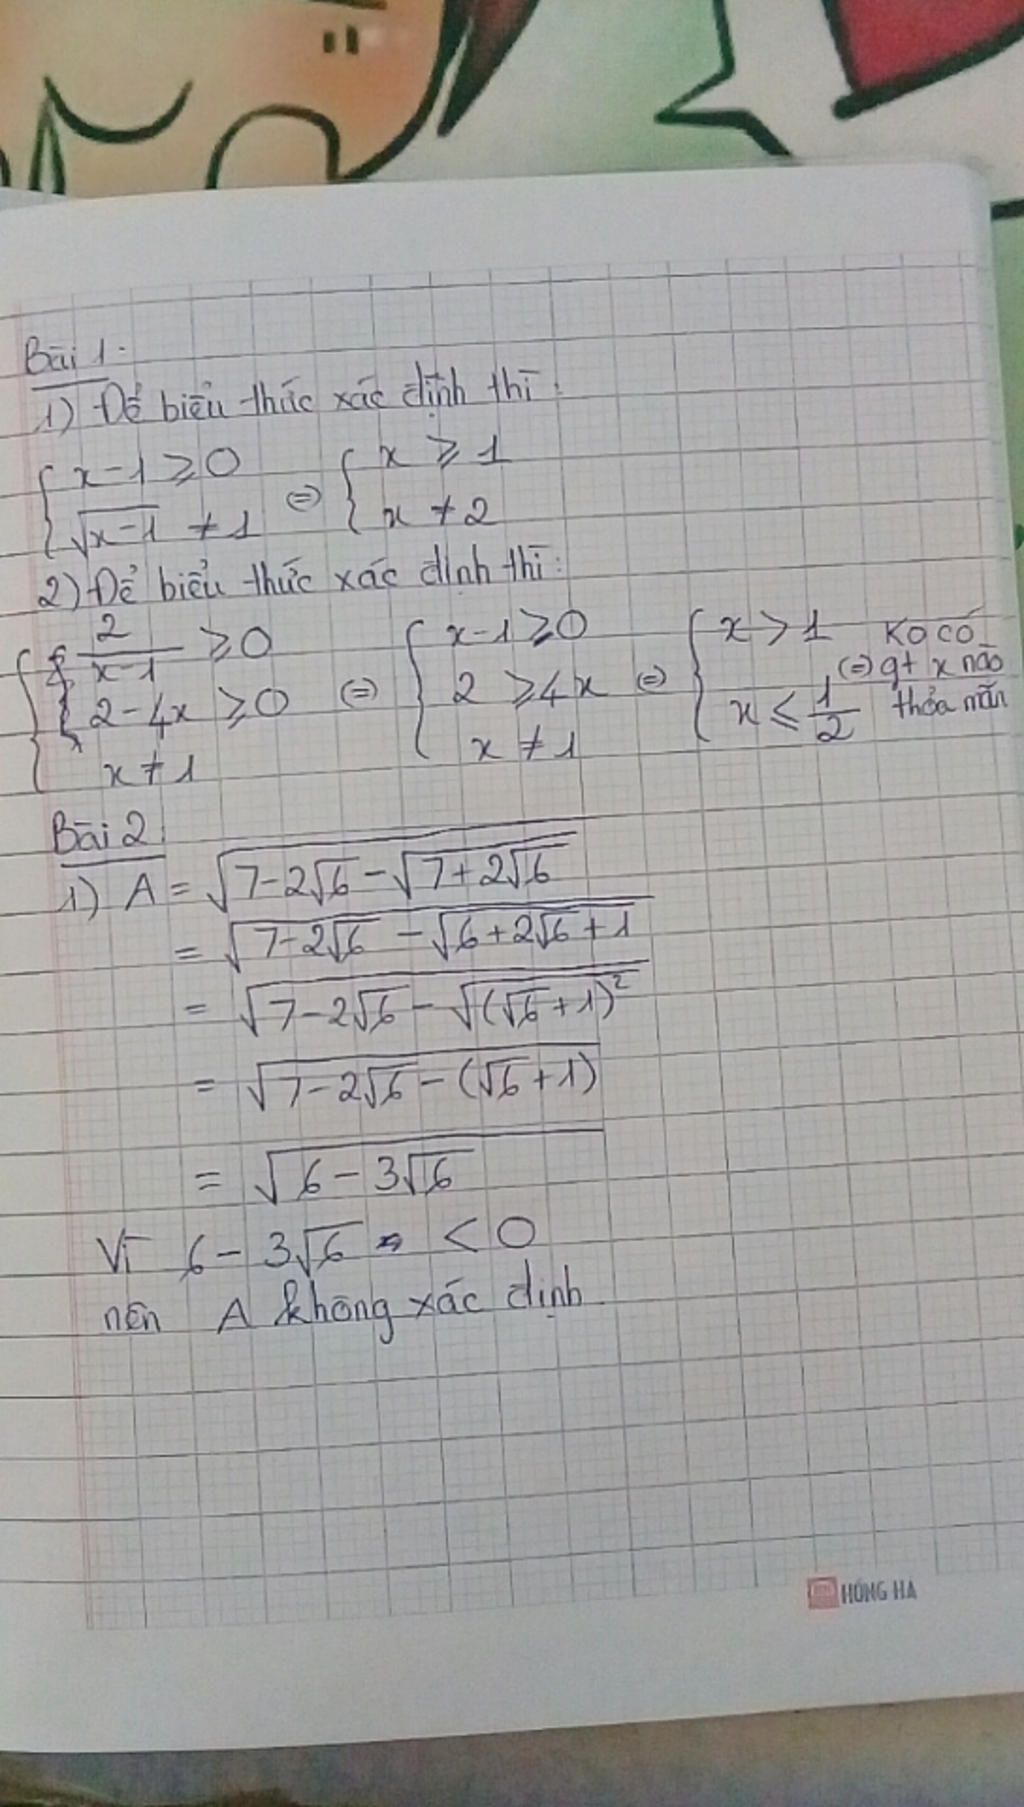 Bài 1:
1) Để biểu thức xác định thì:
{ x-1 ≥ 0 ⇔ { x ≥ 1
{ √(x-1) ≠ 1 { x ≠ 2
2) Để biểu thức xác định thì:
{ 2/(x-1) ≥ 0 ⇔ { x-1 ≥ 0 ⇔ { x > 1 ⇔ Ko có gt x nào thỏa mãn
{ 2-4x ≥ 0 { 2 ≥ 4x { x ≤ 1/2
{ x ≠ 1 { x ≠ 1
Bài 2
1) A = √(7-2√6 - √(7+2√6))
= √(7-2√6 - √(6+2√6+1))
= √(7-2√6 - √((√6+1)²))
= √(7-2√6 - (√6+1))
= √(6-3√6)
Vì 6-3√6 < 0
nên A không xác định
HỒNG HÀ